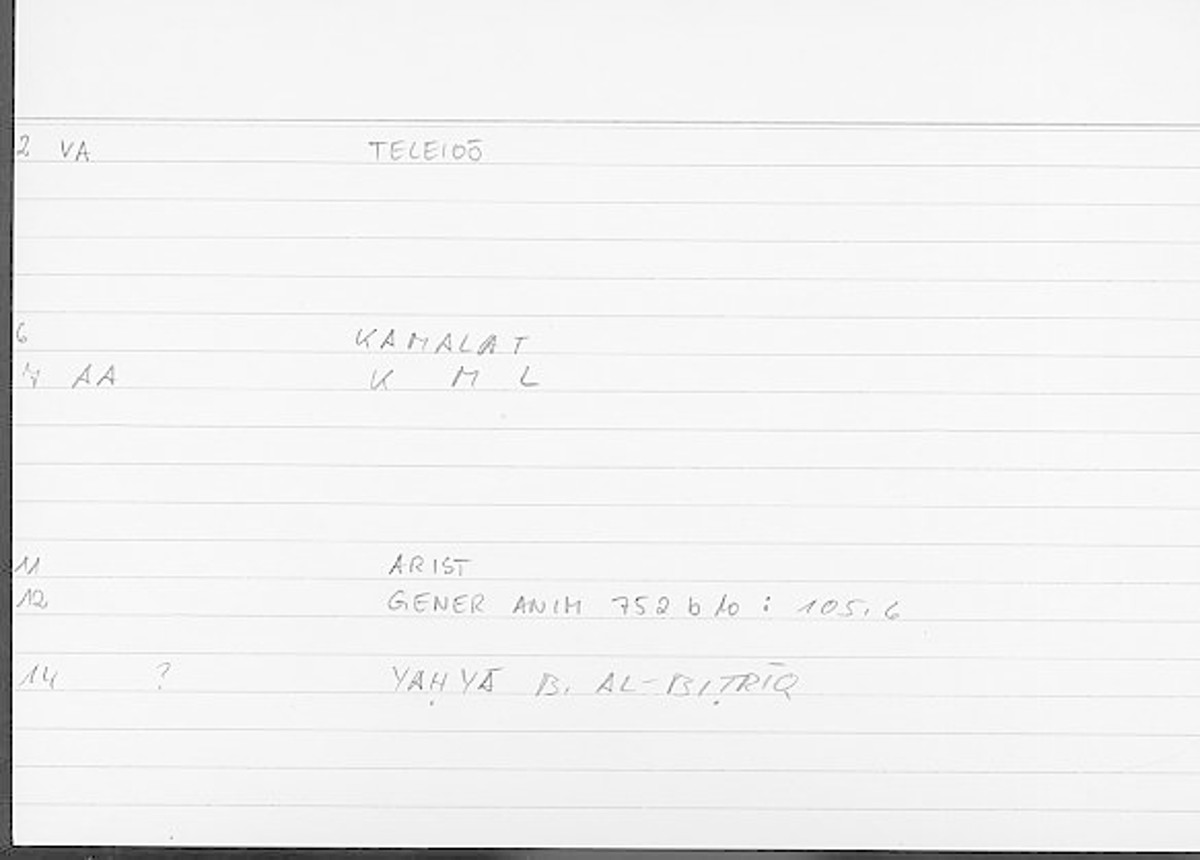 2 VA TELEIOŌ
6 KAMALAT
7 AA K M L
11 ARIST
12 GENER ANIM 752 b 10 : 105.6
14 ? YAḤYĀ B. AL-BIṬRĪQ